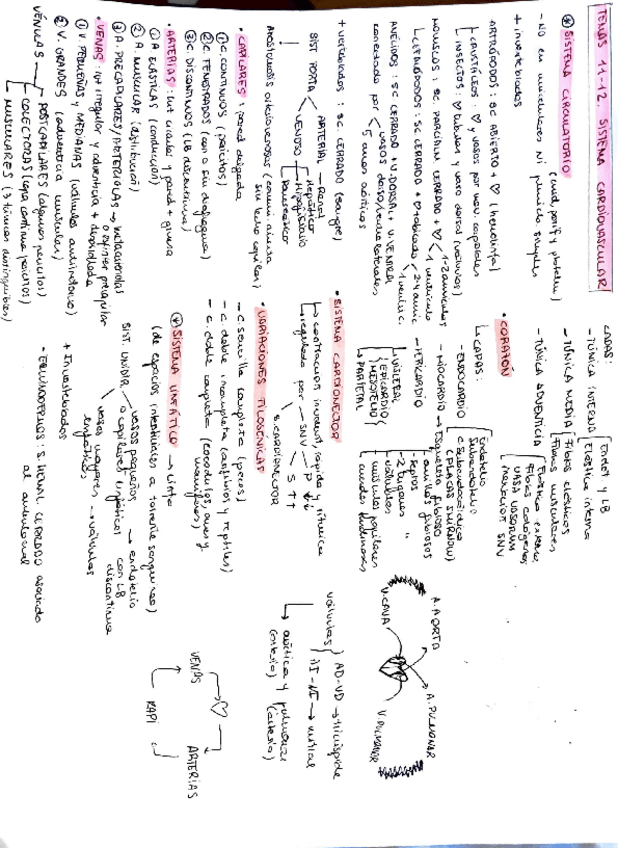 TEMAS 11-12. SISTEMA CARDIOVASCULAR
* SISTEMA CIRCULATORIO
- NO en unicelulares NI
+ invertebrados
ARTRÓPODOS: SC ABIERTO + ♡ (hemolinfa)
CRUSTÁCEOS: ♡ y vasos por
INSECTOS: ♡ tubular y vaso dorsal (válvulas)
MOLUSCOS: SC. PARCIALM CERRADO + ♡ < 1-2 aurículas
1 ventrículo
CEFALÓPODOS: SC CERRADO + ♡ tabicado
ANÉLIDOS: SC CERRADO + V. DORSAL + V. VENTRAL
conectado por < vasos dorsoventrolaterales
5 arcos aórticos
+ vertebrados: SC. CERRADO (sangre)
SIST PORTA < ARTERIAL - Renal
VENOSO Hepático
Hipofisiario
Pancreático
Anastomosis arteriovenosas
sin lecho capilar)
• CAPILARES: pared delgada
① C. CONTINUOS (pericitos)
② C. FENESTRADOS (con o sin diafragma)
③ C. DISCONTINUOS (LB discontinua)
• ARTERIAS: luz circular y pared + gruesa
① A ELÁSTICAS (conducción)
② A. MUSCULAR (distribución)
③ A. PRECAPILARES/ARTERIOLAS → metaarteriolas
o esfínter precapilar
• VENAS: luz irregular y adventicia + desarrollada
① V. PEQUEÑAS y MEDIANAS (válvulas antirretorno)
② V. GRANDES (adventicia muscular)
VÉNULAS
POSTCAPILARES (algunos pericitos)
COLECTORAS (capa continua pericitos)
MUSCULARES (3 túnicas distinguibles)
CAPAS:
- TÚNICA INTERNA [Endot y LB
Elástica interna
- TÚNICA MEDIA [Fibras elásticas
Fibras musculares
- TÚNICA ADVENTICIA [Elástica externa
Fibras colágenas
VASA VASORUM
inervación SNV
• CORAZÓN
CAPAS:
- ENDOCARDIO [Endotelio
Subendotelio
- MIOCARDIO → Esqueleto fibroso
anillos fibrosos
- 2 trígonos "
- PERICARDIO
VISCERAL
EPICARDIO
MESOTELIO
PARIETAL
músculos papilares
• SISTEMA CARDIONECTOR
contracción involunt, rápida y rítmica
regulado por - SNV - P ↓↓
S ↑↑
S. CARDIONECTOR
• VARIACIONES FILOGÉNICAS
- C. sencilla completa (peces)
- C. doble incompleta (anfibios y reptiles)
- C. doble completa (cocodrilos, aves y
mamíferos)
* SISTEMA LINFÁTICO → Linfa
(de espacios intersticiales a torrente sanguíneo)
SIST. UNIDIR
vasos pequeños → endotelio
o capilares linfáticos con LB
discontinua
vasos mayores → válvulas
linfáticos
+ Invertebrados
• EQUINODERMOS: S. HEMAL CERRADO asociado
al ambulacral
A. AORTA
A. PULMONAR
V. CAVA
V. PULMONAR
válvulas
AD-VD → tricúspide
AI-VI → mitral
aórtica y pulmonar
VENAS
♡
ARTERIAS
KAPI